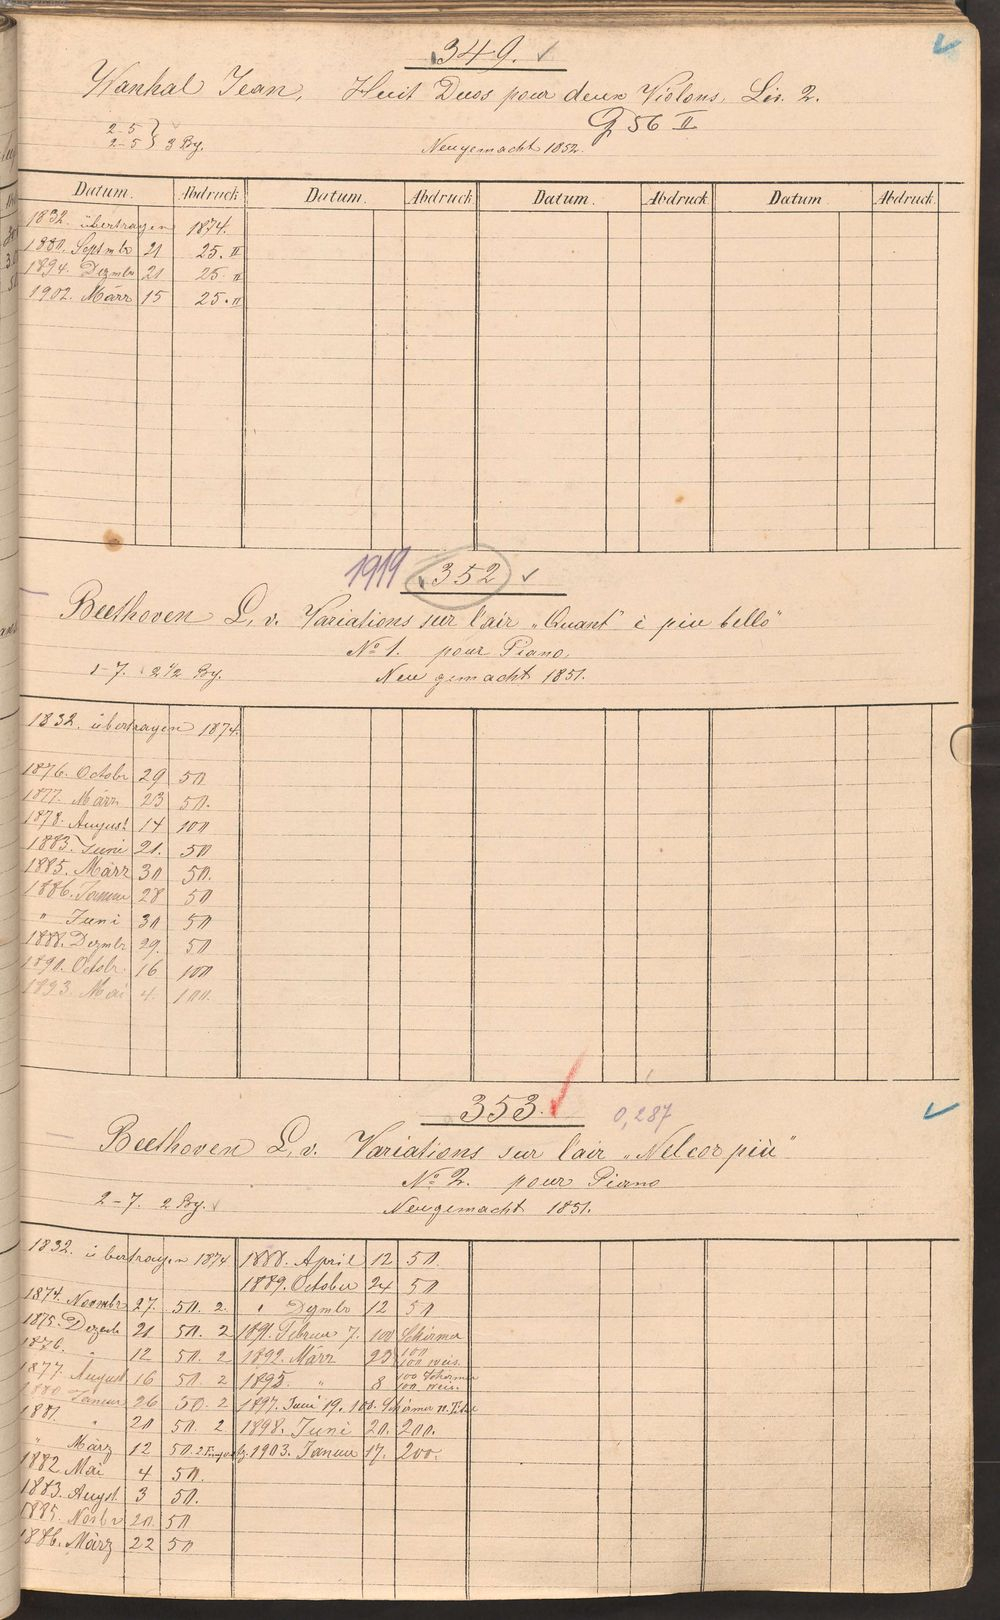 349.
Wanhal Jean, Huit Duos pour deux Violons, Liv. 2.
G 56 II
2-5
2-5 } 3 Bg.
Neugemacht 1852.
Datum. Abdruck Datum. Abdruck Datum. Abdruck Datum Abdruck.
1832. übertragen 1874.
1880. Septmbr 21 25. II
1894. Dezmbr 21 25. II
1902. März 15 25. II
1919 352
Beethoven L. v. Variations sur l'air „Quant' è piu bello"
No 1. pour Piano.
1-7. 2 1/2 Bg. Neu gemacht 1851.
1832. übertragen 1874.
1876. Octobr 29 50
1877. März 23 50.
1878. August 14 100
1883. Juni 21. 50
1885. März 30 50.
1886. Januar 28 50
" Juni 30 50
1888. Dezmbr 29. 50
1890. Octobr. 16 100
1893. Mai 4. 100.
353.
0,287
Beethoven L. v. Variations sur l'air „Nel cor più"
No 2. pour Piano
2-7. 2 Bg. Neugemacht 1851.
1832. übertragen 1874 1888. April 12 50.
1889. October 24 50
1874. Novmbr 27. 50. 2. " Dezmbr 12 50
1875. Dezmb 21 50. 2 1891. Februar 7. 100 Schirmer
1876. " 12 50. 2 1892. März 23 100
100 weis.
1877. August 16 50. 2 1895. " 8 100 Schirmer
100. weis.
1880 Januar 26 50. 2 1897. Juni 19. 100. Schirmer
1881. " 20 50. 2 1898. Juni 20. 200.
" März 12 50. 2 1903. Januar 17. 200.
1882 Mai 4 50.
1883. Augst. 3 50.
1885. Novbr 20. 50
1886. März 22 50